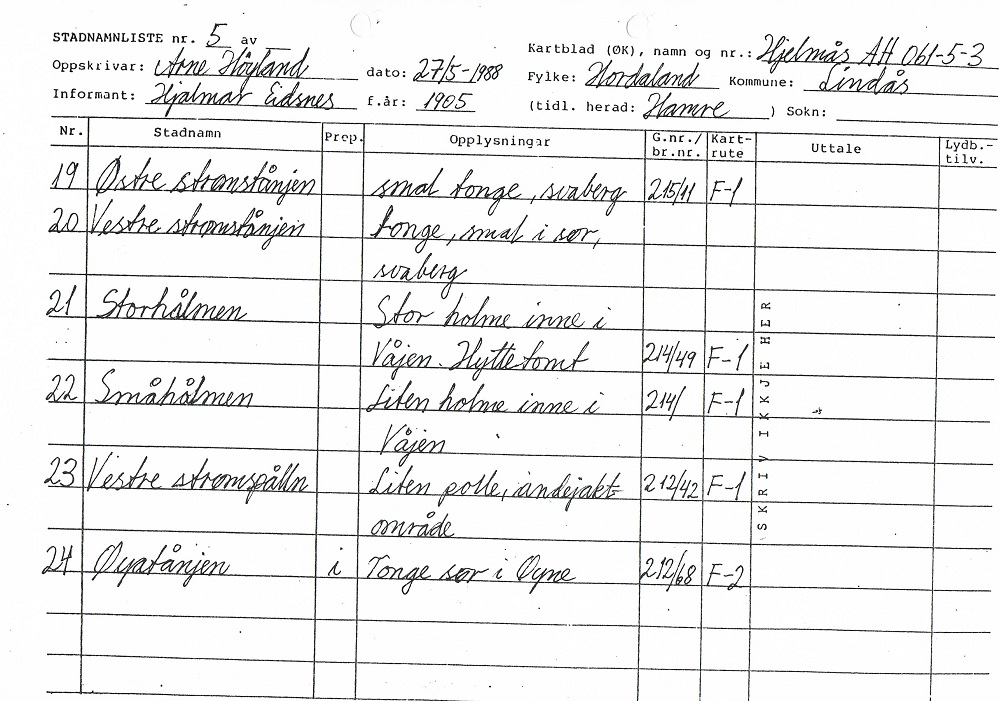 STADNAMNLISTE nr. 5 av
Kartblad (ØK), namn og nr.: Hjelmås AH 061-5-3
Oppskrivar: Arne Høyland dato: 27/5-1988
Fylke: Hordaland Kommune: Lindås
Informant: Hjalmar Eidsnes f.år: 1905
(tidl. herad: Hamre ) Sokn:
Nr. Stadnamn Prep. Opplysningar G.nr./ br.nr. Kart- rute Uttale Lydb.- tilv.
19 Østre strømstånjen smal tonge, svaberg 215/11 F-1
20 Vestre strømstånjen tonge, smal i sør,
svaberg
21 Storhålmen Stor holme inne i
Våjen. Hyttetomt 214/49 F-1
22 Småhålmen Liten holme inne i 214/ F-1
Våjen
23 Vestre strømspålln Liten polle, andejakt- 212/42 F-1
område
24 i Tonge sør i 212/68 F-2
SKRIV IKKJE HER